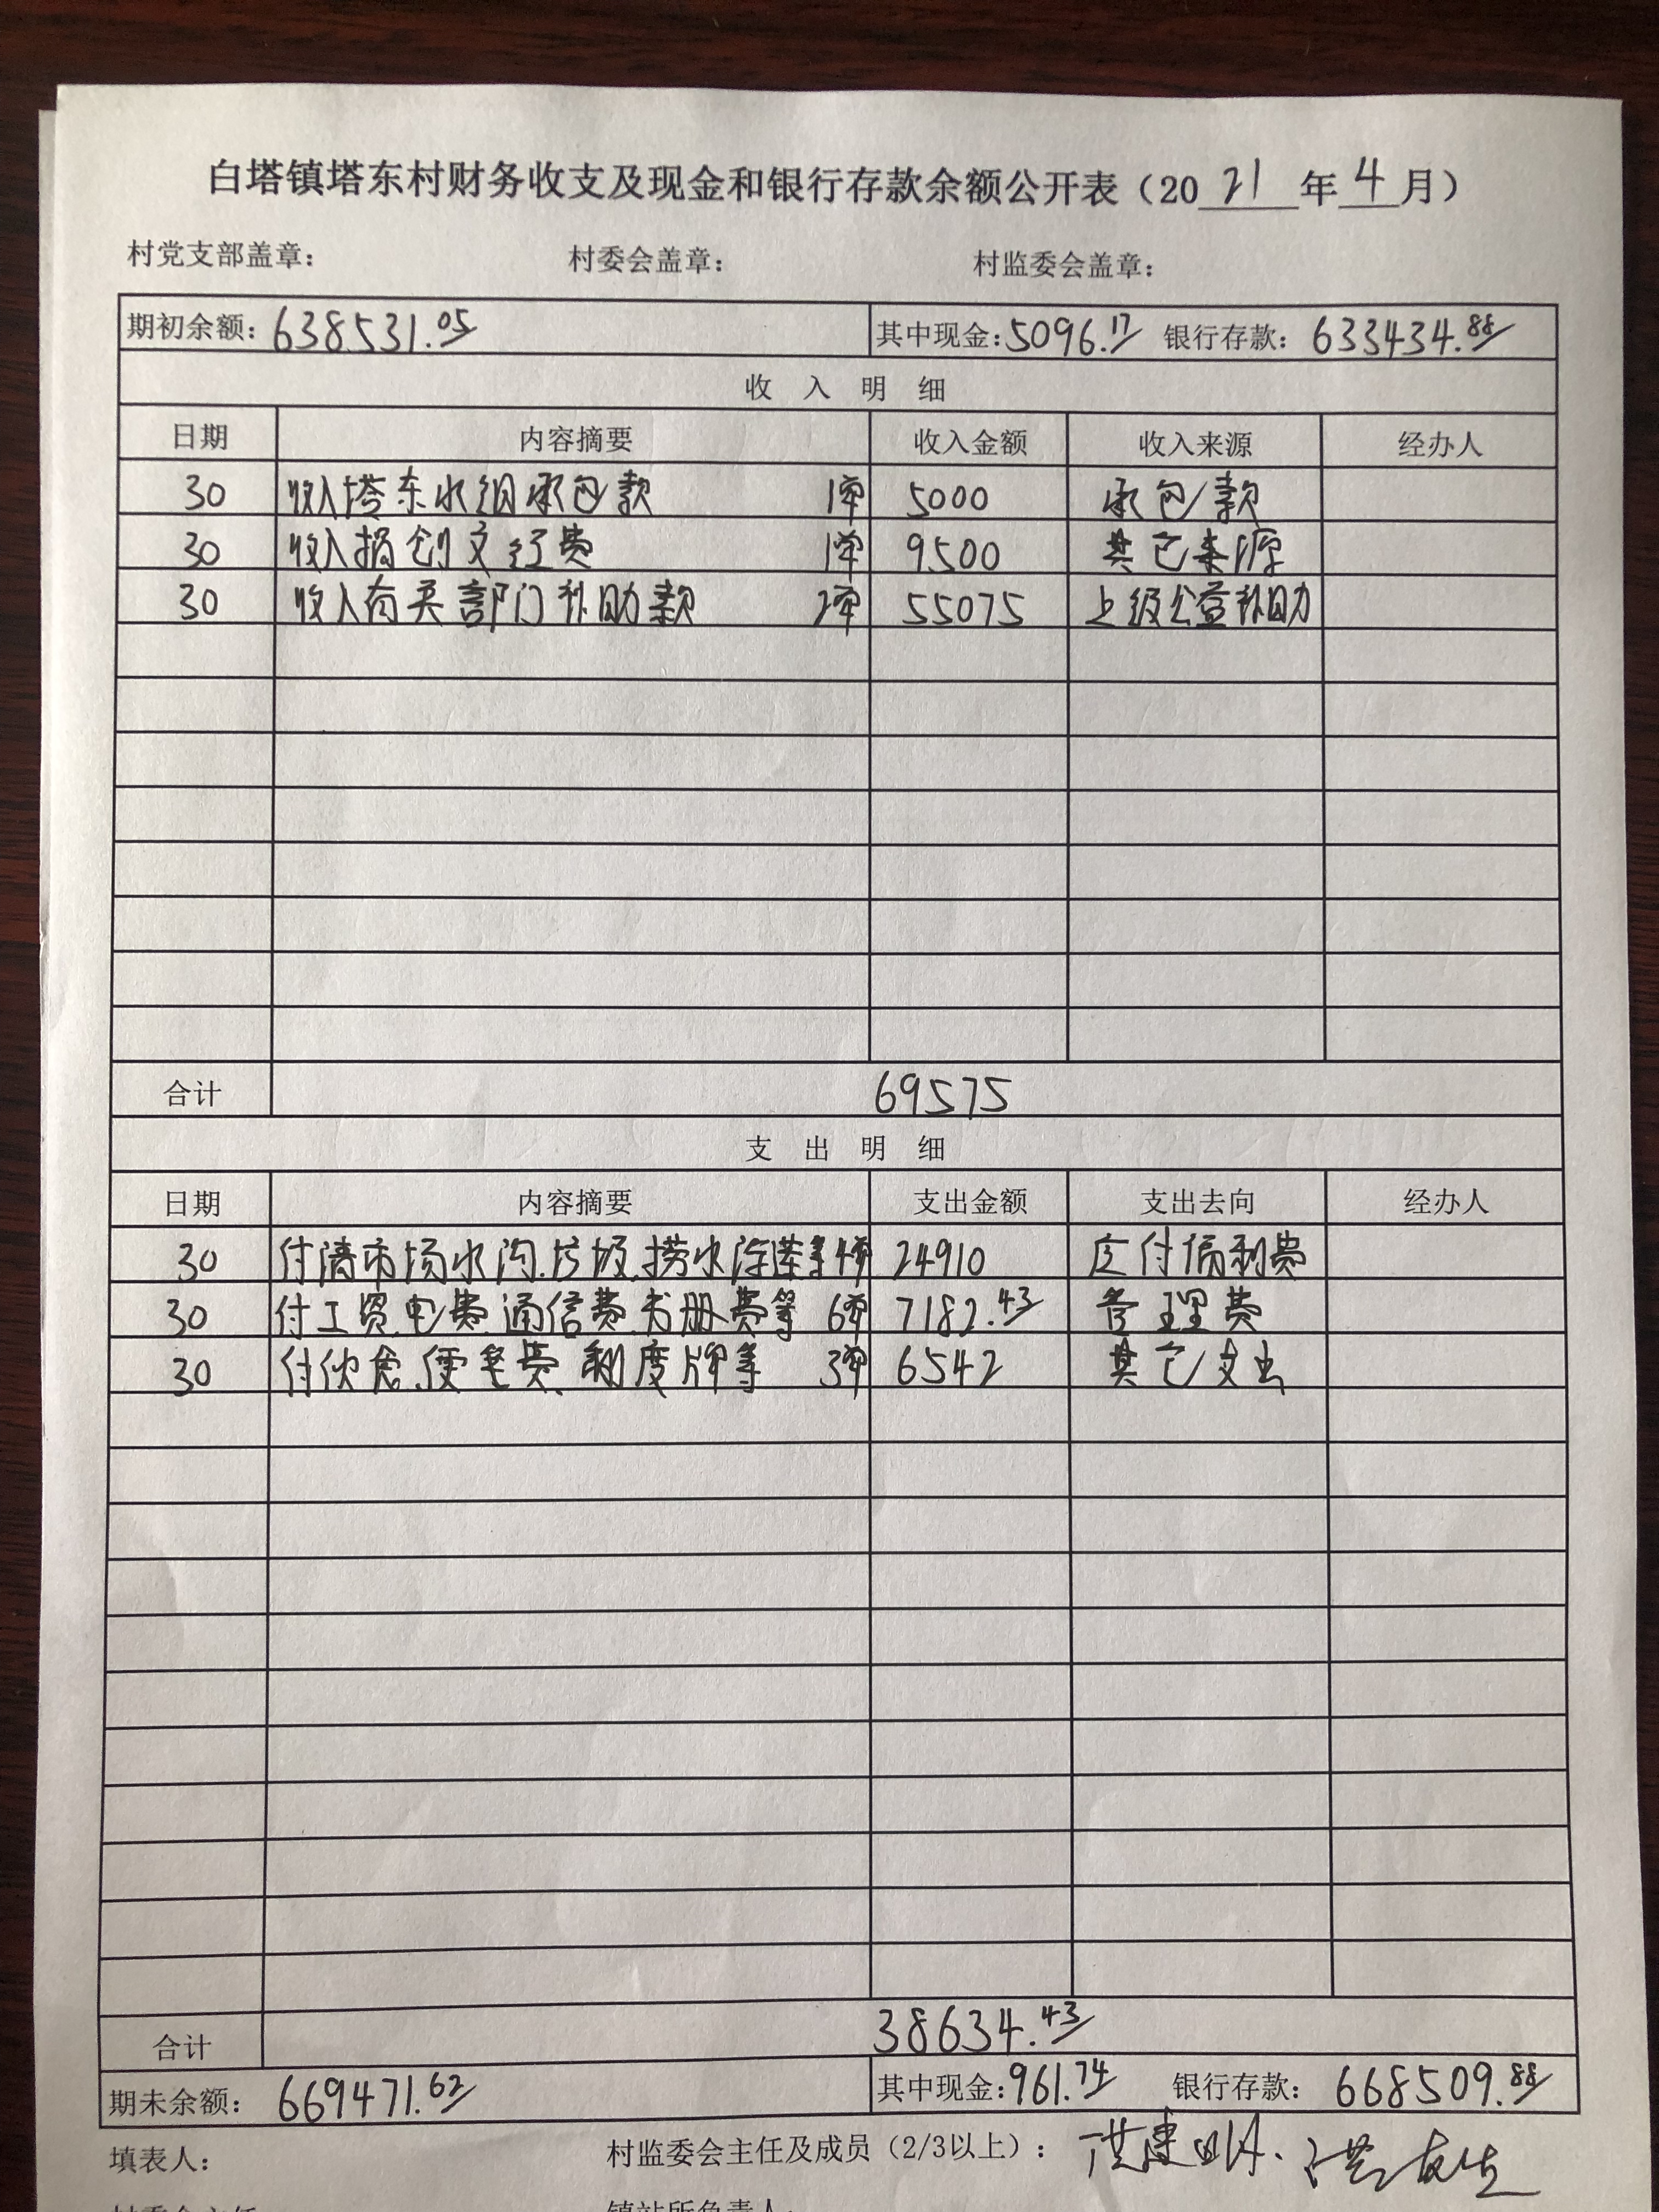 白塔镇塔东村财务收支及现金和银行存款余额公开表（2021年4月）
村党支部盖章： 村委会盖章： 村监委会盖章：
期初余额：638531.05 其中现金：5096.17 银行存款：633434.88
收入明细
日期 内容摘要 收入金额 收入来源 经办人
30 收入塔东水组承包款 1单 5000 承包款
30 收入捐创文经费 1单 9500 其它来源
30 收入有关部门补助款 2单 55075 上级公益补助
合计 69575
支出明细
日期 内容摘要 支出金额 支出去向 经办人
30 付清市场水沟.垃圾.捞水浮莲等4单 24910 应付福利费
30 付工资.电费.通信费.书册费等 6单 7182.43 管理费
30 付伙食.便笔费.制度牌等 3单 6542 其它支出
合计 38634.43
期未余额：669471.62 其中现金：961.74 银行存款：668509.88
填表人： 村监委会主任及成员（2/3以上）：洪建
村委会主任 镇站所负责人：